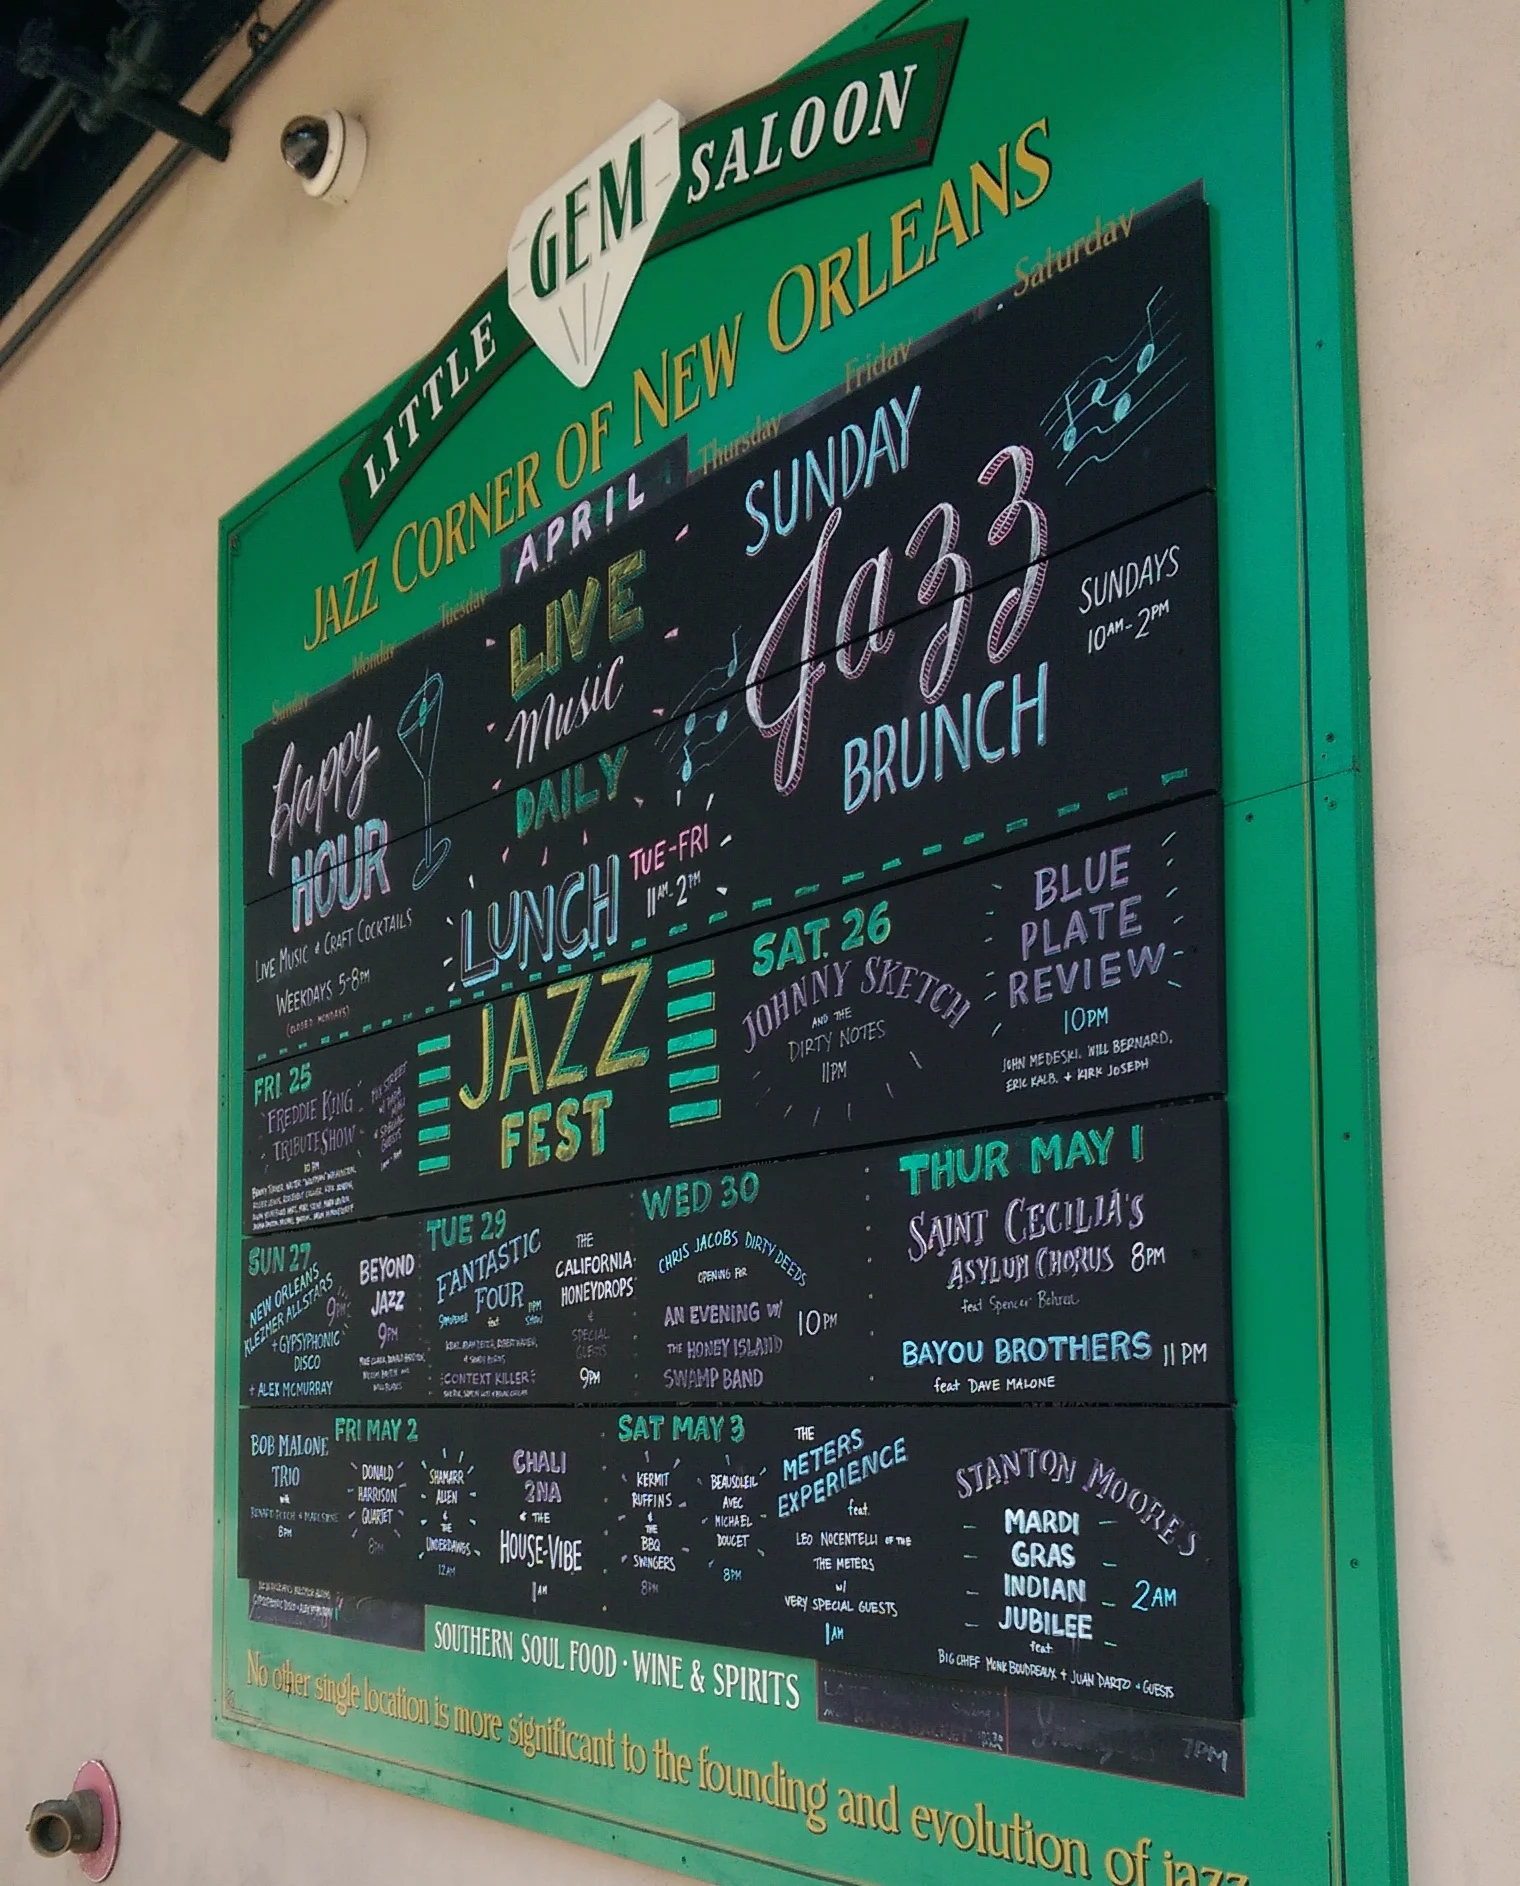 LITTLE GEM SALOON
JAZZ CORNER OF NEW ORLEANS
Sunday
Monday
Tuesday
Thursday
Friday
Saturday
APRIL
Happy
HOUR
LIVE MUSIC & CRAFT COCKTAILS
WEEKDAYS 5-8PM
(CLOSED MONDAYS)
LIVE
Music
DAILY
LUNCH
TUE-FRI
11AM-2PM
SUNDAY
Jazz
BRUNCH
SUNDAYS
10AM-2PM
FRI 25
FREDDIE KING
TRIBUTE SHOW
10 PM
JAZZ
FEST
SAT. 26
JOHNNY SKETCH
AND THE
DIRTY NOTES
11PM
BLUE
PLATE
REVIEW
10PM
JOHN MEDESKI, WILL BERNARD,
ERIC KALB, + KIRK JOSEPH
SUN 27
NEW ORLEANS
KLEZMER ALLSTARS
9PM
+ GYPSYPHONIC
DISCO
+ ALEX MCMURRAY
BEYOND
JAZZ
9PM
TUE 29
FANTASTIC
FOUR
feat
CONTEXT KILLER
THE
CALIFORNIA
HONEYDROPS
&
SPECIAL
GUESTS
9PM
WED 30
CHRIS JACOBS DIRTY DEEDS
OPENING FOR
AN EVENING W/
THE HONEY ISLAND
SWAMP BAND
10PM
THUR MAY 1
SAINT CECILIA'S
ASYLUM CHORUS 8PM
feat Spencer Bohren
BAYOU BROTHERS 11PM
feat DAVE MALONE
BOB MALONE
TRIO
8PM
FRI MAY 2
DONALD
HARRISON
QUARTET
8PM
SHAMARR
ALLEN
&
THE
UNDERDAWGS
12AM
CHALI
2NA
& THE
HOUSE-VIBE
1AM
SAT MAY 3
KERMIT
RUFFINS
&
THE
BBQ
SWINGERS
8PM
BEAUSOLEIL
AVEC
MICHAEL
DOUCET
8PM
THE
METERS
EXPERIENCE
feat.
LEO NOCENTELLI OF THE
THE METERS
W/
VERY SPECIAL GUESTS
1AM
STANTON MOORE'S
MARDI
GRAS
INDIAN
JUBILEE
2AM
feat.
BIG CHIEF MONK BOUDREAUX + JUAN PARTZ + GUESTS
SOUTHERN SOUL FOOD · WINE & SPIRITS
7PM
No other single location is more significant to the founding and evolution of jazz